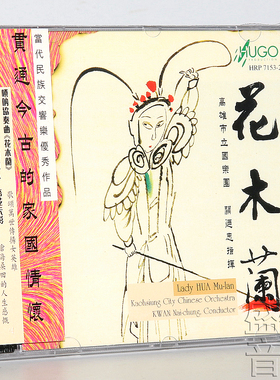 HUGO
HRP 7153-2
當代民族交響樂優秀作品
貫通今古的家國情懷
嗩吶協奏曲《花木蘭》
歌頌萬世傳騎女英雄
高雄市立國樂團
關迺忠指揮
花木蘭
Lady HUA Mu-lan
Kaohsiung City Chinese Orchestra
KWAN Nai-chung, Conductor